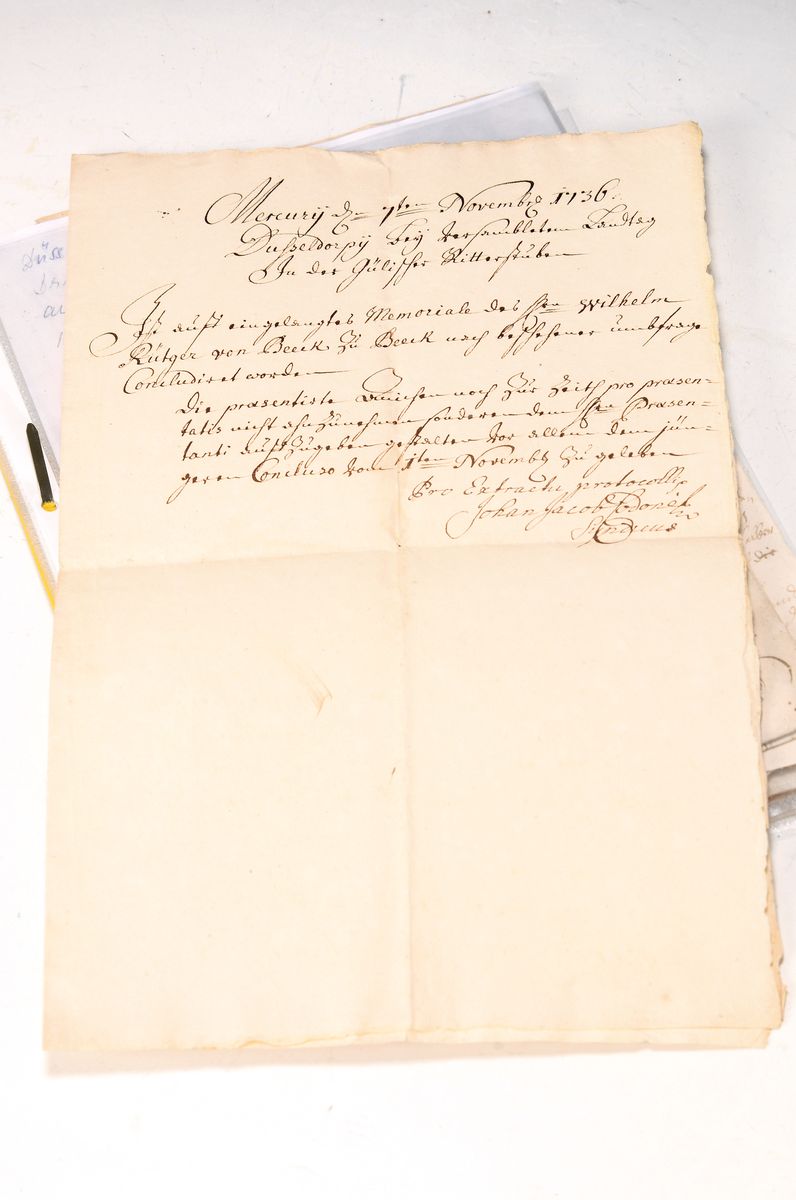 Mercurÿ d. 7ten Novembris 1736
Dußeldorpÿ beÿ versambletem Landtag
In der Gülischer Ritterstuben
Ist auff eingelangtes Memoriale des Hrn Wilhelm
Rütger von Beeck zu Beeck nach beschehener umbfrage
Concludiret worden
Die præsentirte noch zur Zeith pro præsen-
tatis nicht ahnzunehmen sonderen dem Hrn Præsen-
tanti auffzugeben gestalten vor allem dem jün-
geren Concluso vom 1ten Novemb. zu geleben
Pro Extractu protocolli
Johan Jacob
Sÿndicus
Düsse